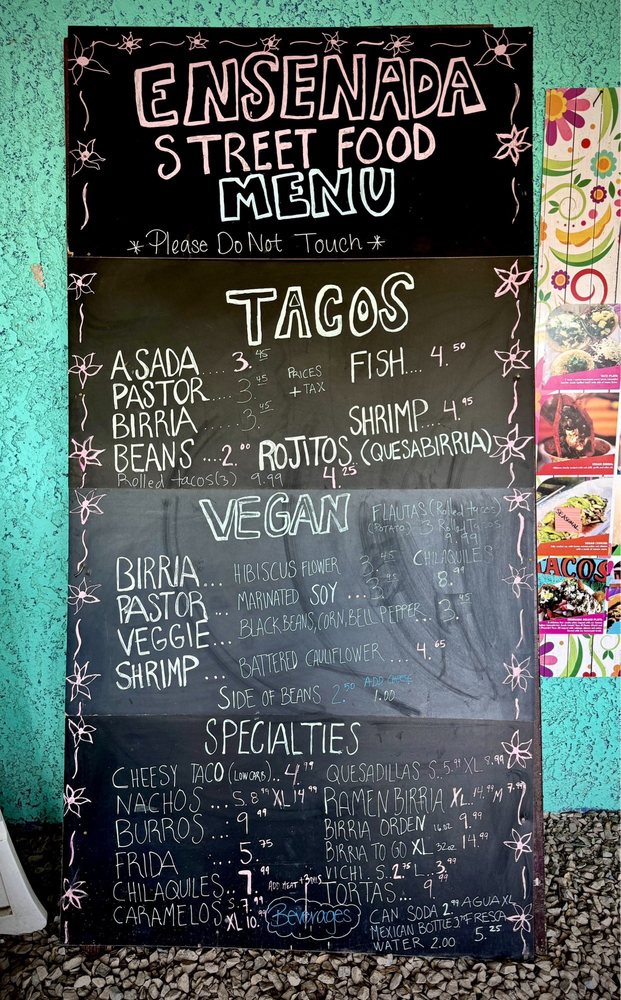 ENSENADA
STREET FOOD
MENU
*Please Do Not Touch*
TACOS
ASADA.... 3.45
PASTOR.... 3.45
BIRRIA.... 3.45
BEANS ...2.00
Rolled tacos(3) 9.99
PRICES
+ TAX
FISH.... 4.50
SHRIMP.... 4.95
ROJITOS (QUESABIRRIA)
4.25
VEGAN
FLAUTAS (Rolled tacos)
(POTATO) 3 Rolled Tacos
9.99
CHILAQUILES
8.99
BIRRIA... HIBISCUS FLOWER 3.45
PASTOR... MARINATED SOY ... 3.45
VEGGIE... BLACK BEANS, CORN, BELL PEPPER... 3.45
SHRIMP ... BATTERED CAULIFLOWER ... 4.65
SIDE OF BEANS 2.50 ADD CHEESE
1.00
SPECIALTIES
CHEESY TACO (LOW CARB).. 4.99
NACHOS... S. 8.99 XL 14.99
BURROS... 9.99
FRIDA ... 5.75
CHILAQUILES.. 7.99 ADD MEAT +3
CARAMELOS S. 7.99
XL 10.99
QUESADILLAS S.. 5.99 XL 8.99
RAMEN BIRRIA XL.. 14.99 M 7.99
BIRRIA ORDEN 16oz 9.99
BIRRIA TO GO XL 32oz 14.99
VICHI. S. 2.75 L.. 3.99
TORTAS... 9.99
Beverages
CAN SODA 2.99
MEXICAN BOTTLE
WATER 2.00
AGUA XL
FRESCA
5.25
SEASONAL
TACOS